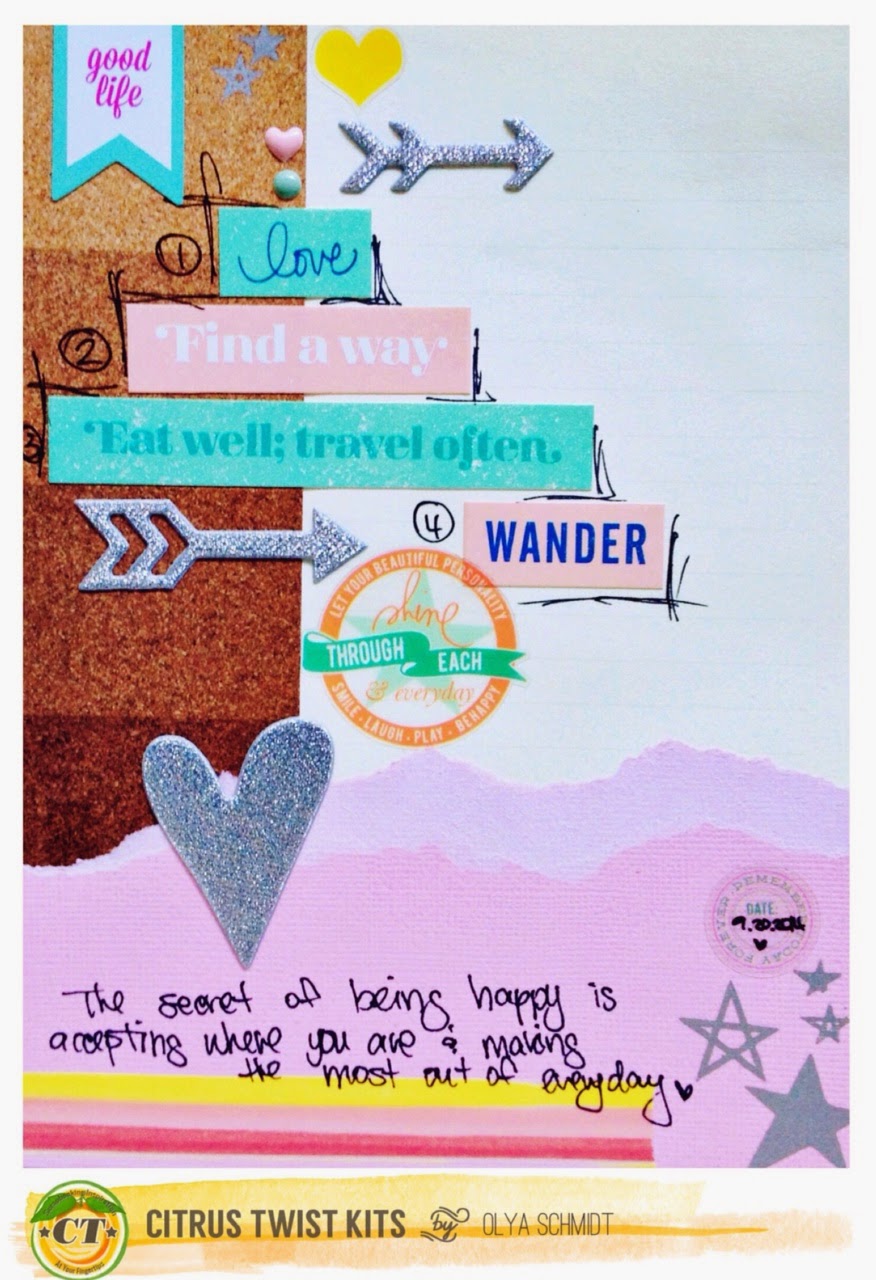 good
life
① love
② Find a way
③ Eat well; travel often.
④ WANDER
LET YOUR BEAUTIFUL PERSONALITY
shine
THROUGH EACH
& everyday
SMILE · LAUGH · PLAY · BEHAPPY
REMEMBER TODAY FOREVER
DATE:
The secret of being happy is
accepting where you are & making
the most out of everyday
CT
At Your Fingertips
CITRUS TWIST KITS by OLYA SCHMIDT